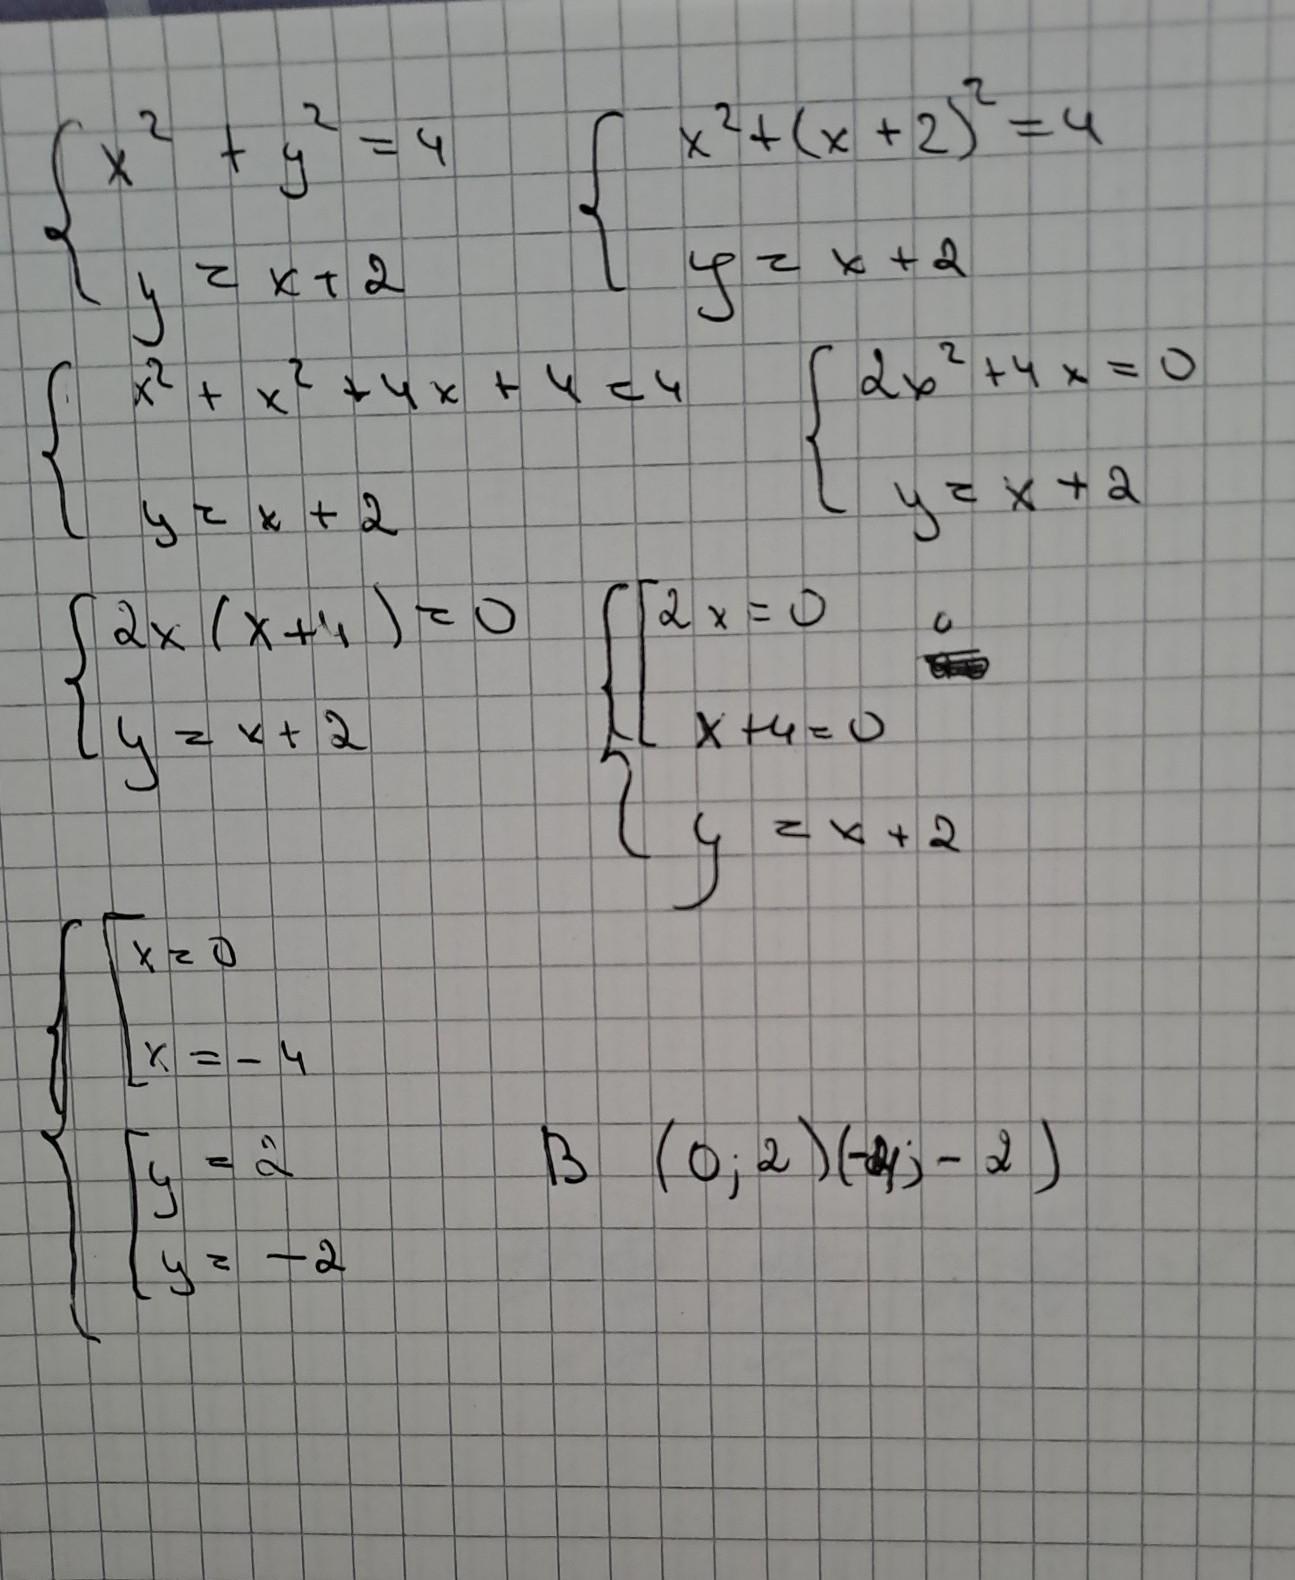 x² + y² = 4
y = x + 2
x² + (x + 2)² = 4
y = x + 2
x² + x² + 4x + 4 = 4
y = x + 2
2x² + 4x = 0
y = x + 2
2x (x + 4) = 0
y = x + 2
2x = 0
x + 4 = 0
y = x + 2
x = 0
x = - 4
y = 2
y = - 2
В (0; 2) (-4; - 2)